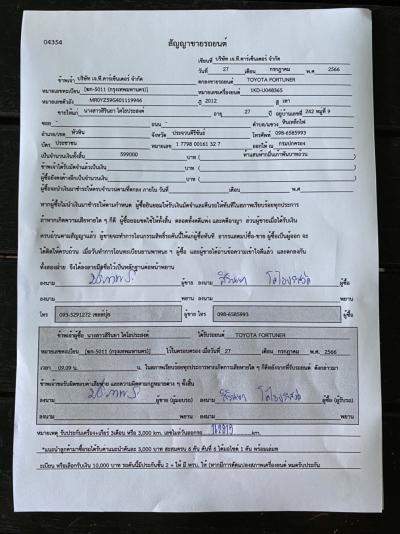 04354
สัญญาขายรถยนต์
เขียนที่ บริษัท เจ.ที.คาร์เซ็นเตอร์ จำกัด
วันที่ 27 เดือน กรกฎาคม พ.ศ. 2566
ข้าพเจ้า บริษัท เจ.ที.คาร์เซ็นเตอร์ จำกัด ตกลงขายรถยนต์ TOYOTA FORTUNER
หมายเลขทะเบียน (ฆก-5011 (กรุงเทพมหานคร)) หมายเลขเครื่องยนต์ 1KD-U048365
หมายเลขตัวถัง MR0YZ59G401119946 ปี 2012 สี เทา
ขายให้แก่ นางสาวสิรินยา โตไธประสงค์ อายุ 27 ปี อยู่บ้านเลขที่ 242 หมู่ที่ 9
ซอย - ถนน - ตำบล/แขวง หินเหล็กไฟ
อำเภอ/เขต หัวหิน จังหวัด ประจวบคีรีขันธ์ โทรศัพท์ 098-6585993
บัตร ประชาชน หมายเลข 1 7798 00161 32 7 ออกให้ ณ กรมปกครอง
เป็นจำนวนเงินทั้งสิ้น 599000 บาท ( ห้าแสนเก้าหมื่นเก้าพันบาทถ้วน )
ข้าพเจ้าได้รับมัดจำแล้วเป็นเงิน บาท ( )
ผู้ซื้อยังคงค้างอีกเป็นจำนวนเงิน บาท ( )
ผู้ซื้อจะนำเงินมาชำระให้ครบจำนวนตามที่ตกลง ภายใน วันที่ เดือน พ.ศ.
หากผู้ซื้อไม่นำเงินมาชำระให้ตามกำหนด ผู้ซื้อยินยอมให้ริบเงินมัดจำและคืนรถให้ทันทีในสภาพเรียบร้อยทุกประการ
ถ้าหากเกิดความเสียหายใด ๆ ก็ดี ผู้ซื้อยอมชดใช้ให้ทั้งสิ้น ตลอดทั้งคดีแพ่ง และคดีอาญา ส่วนผู้ขายเมื่อได้รับเงิน
ครบถ้วนตามสัญญาแล้ว ผู้ขายจะทำการโอนกรรมสิทธิ์รถคันนี้ให้แก่ผู้ซื้อทันที อากรแสตมป์ซื้อ-ขาย ผู้ซื้อเป็นผู้ออก จะ
ได้คิดให้ครบถ้วน เมื่อวันทำการโอนทะเบียนยานพาหนะ ฯ ผู้ซื้อ และผู้ขายได้อ่านข้อความเข้าใจดีแล้ว และตกลงกัน
ทั้งสองฝ่าย จึงได้ลงลายมือชื่อไว้เป็นหลักฐานต่อหน้าพยาน
ลงนาม ผู้ขาย ลงนาม สิรินยา ผู้ซื้อ
ลงนาม พยาน ลงนาม พยาน
โทร 093-3291272 เซลล์ปุ้ย ผู้ขาย โทร 098-6585993 ผู้ซื้อ
ข้าพเจ้าผู้ซื้อ นางสาวสิรินยา โตไธประสงค์ ได้รับรถยนต์ TOYOTA FORTUNER
หมายเลขทะเบียน (ฆก-5011 (กรุงเทพมหานคร)) ไว้ในครอบครอง เมื่อวันที่ 27 เดือน กรกฎาคม พ.ศ. 2566
เวลา 09.09 น. ในสภาพเรียบร้อยทุกประการหากเกิดการเสียหายใด ๆ ก็ดีหลังจากที่รับรถยนต์ ดังกล่าวมา
ข้าพเจ้าขอรับผิดชอบค่าเสียหาย และความผิดตามกฎหมายต่าง ๆ ทั้งสิ้น
ลงนาม ผู้ขาย (ผู้มอบรถ) ลงนาม สิรินยา ผู้ซื้อ (ผู้รับรถ)
ลงนาม พยาน ลงนาม พยาน
หมายเหตุ รับประกันเครื่อง+เกียร์ 3เดือน หรือ 3,000 km. เลขไมล์วันออกรถ km.
*แนะนำลูกค้ามาซื้อรถได้รับค่าแนะนำคันละ 3,000 บาท สะสมครบ 6 คัน คันที่ 6 ได้มอไซค์ 1 คัน พร้อมเลมค
ระเบียน หรือเลือกรับเงิน 10,000 บาท รถคันนี้มีประกันชั้น 2 + ให้ มี พรบ. ให้ (หากมีการดัดแปลงสภาพเครื่องยนต์ หมดรับประกัน